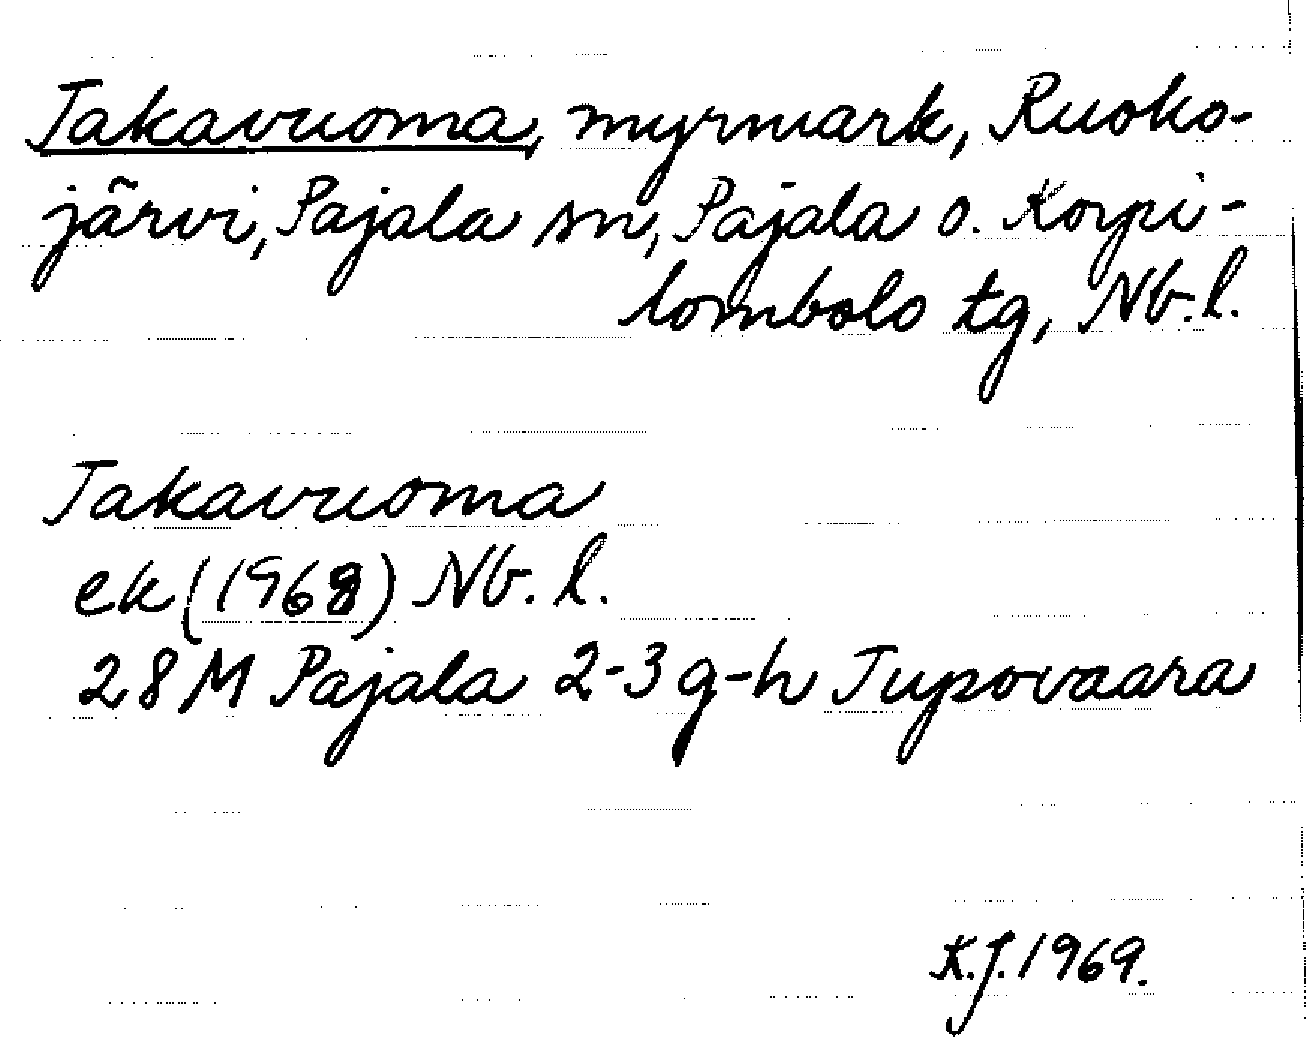 Takavuoma, myrmark, Ruoko-
järvi, Pajala sn, Pajala o. Korpi-
lombolo tg, Nb. l.
Takavuoma
ek (1968) Nb. l.
28 M Pajala 2-3 g-h Jupovaara
K.J. 1969.